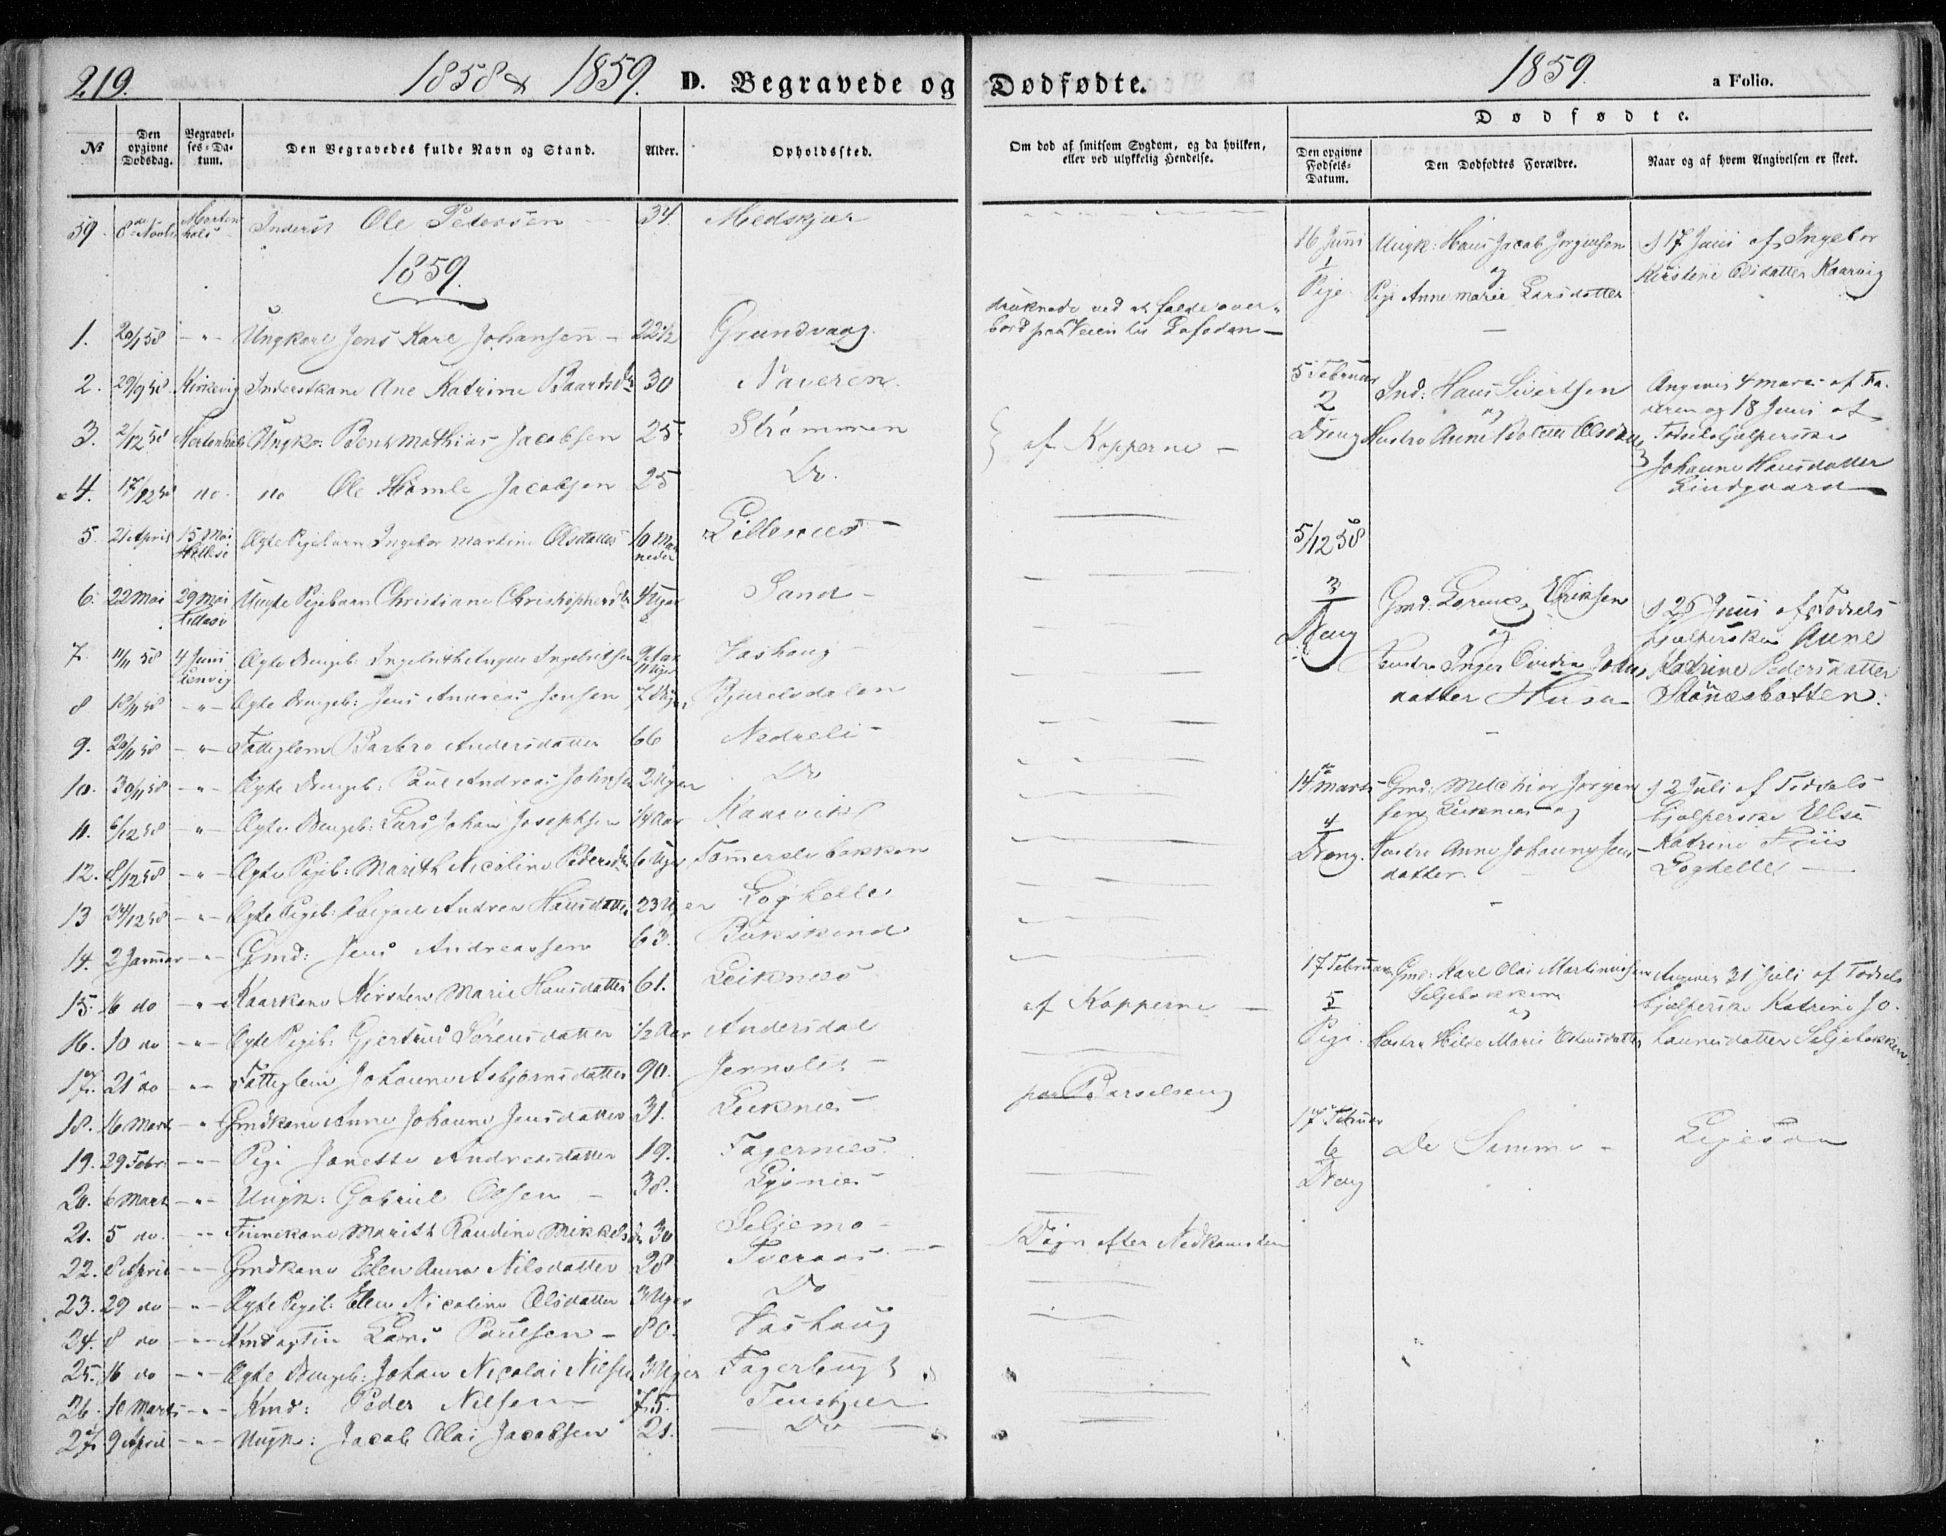 219.
1858 & 1859.
D. Begravede og Dødfødte.
1859.
a Folio.
№
Den opgivne Dødsdag.
Begravelses-Datum.
Den Begravedes fulde Navn og Stand.
Alder.
Opholdssted.
Om død af smitsom Sygdom, og da hvilken, eller ved ulykkelig Hendelse.
Dødfødte.
Den opgivne Fødsels-Datum.
Den Dødfødtes Forældre.
Naar og af hvem Angivelsen er skeet.
59. 8de Novbr Inderst Ole Pedersen 34. Medskjær
1859.
1. 20/1 58 - " - Ungkarl Jens Karl Johansen - 22 1/2 Grundvaag. druknede ved at falde over-
bord paa Veien til Lofoden -
2. 29/9 58 Kirkevig Inderstkone Ane Katrine Baardsd. 30 Naveren.
3. 2/12 58 Ungk: Bens Mathias Jacobsen 25. Strømmen } af Kopperne -
4. 17/12 58 do. do Ole Jacobsen 25 Do.
5. 21 April 15 Mai Ægte Pigebarn Ingebor Martine Olsdatter 6 Maa-
neder Lillenæs -
6. 22 Mai 29 Mai Uægte Pigebarn Christiane Christophersd. 4 Uger Sand -
7. 11/11 58 4 Juni Ægte Drengeb: Vashaug -
8 13/11 58 - " - Ægte Drengeb: Jens Andreas Jensen 7 Bjørelvdalen
9. 20/11 58 - " - Fattiglem Barbro Andersdatter 66 Nedreli -
10. 30/11 58 - " - Ægte Drengeb: Paul Andreas Johnsen 2 Uger Do
11. 6/12 58 " Ægte Drengeb: Lars Johan Josephsen 1/4 Aar Kaarvik
12. 8/12 58 - " - Ægte Pigeb: Marith Nicoline Pedersd. 6 Uger Tømmerelvbakken
13 24/12 58 - " - Ægte Pigeb: Abigael Andrea Hansdatter 23 Uger Løghelle
14. 2 Januar - " - Gmd: Jens Andreassen 63. Bukskind
15. 16 do - " - Kaarkone Kirsten Marie Hansdatter 61. Leiknæs
16. 10 do - " - Ægte Pigeb: Gjertrud Sørensdatter 1/2 Aar Andersdal af Kopperne -
17. 21 do - " - Fattiglem Johanna Asbjørnsdatter 90. Jernslet -
18. 16 Mart - " Gmdkone Anne Johanne Jensdatter 31. Leiknæs paa Barselseng
19. 29 Febr. - " - Pige Janette Andreasdatter 19. Fagernæs.
20. 6 Mart - " - Ungk: Gabriel Olsen - 38. Lysnæs -
21. 5 do. - " - Finnekone Marith Randine Mikkelsd. 30 Seljemo -
22. 8 April - " - Gmdkone Elen Anna Nilsdatter 28 Tveraas. - Døgn efter Nedkomsten
23. 29 do - " - Ægte Pigeb: Elen Nicoline Olsdatter 3 Uger Do
24. 8 do - " - Lars Paulsen - 80. Vashaug
25. 16 do - " - Ægte Drengeb: Johan Nicolai Nilsen 3 Uger Fagerbugt
26. 10 Marts - " - Kmd: Peder Nilsen - 75. Tenskjær
27. 9 April - " - Ungk: Jacob Olai Jacobsen 21. - Do -
16 Juni
1
Pige.
Ungk: Hans Jacob Jørgensen
og
Pige Anne Marie Larsdatter
d 17 Juni af Ingebor
Kirstine Kaarvig
5 Februar
2
Dreng
Ind: Hans Sivertsen
og
Hustru Anne Bolette Olsdatter
Angiven 4 Marts af Fa-
deren og 18 Juni af
Fødselshjælperske
Johanne Hansdatter
Lindgaard
5/12 58
3
Dreng
Gmd: Lorents Eriksen
og
Hustru Inger Johns-
datter Husa
d 26 Juni af Fødsels
hjælperske Anne
Katrine Pedersdatter
Stønæsbotten.
14de Marts
4
Dreng.
Gmd: Melchior Jørgen-
sen Leiknæs og
Hustru Anne Johanne Jens-
datter.
d 2 Juli af Fødsels
hjelperske Else
Katrine Friis
Løghelle
17 Februar
5
Pige.
Gmd: Karl Olai Martinussen
Seljebakken
og
Hustru Hilde Marie
Angiven 31 Juli af Fødsels
hjælperske Katrine Jo-
hannesdatter Seljebakken
17 Februar
6
Dreng
De Samme -
Ligesaa